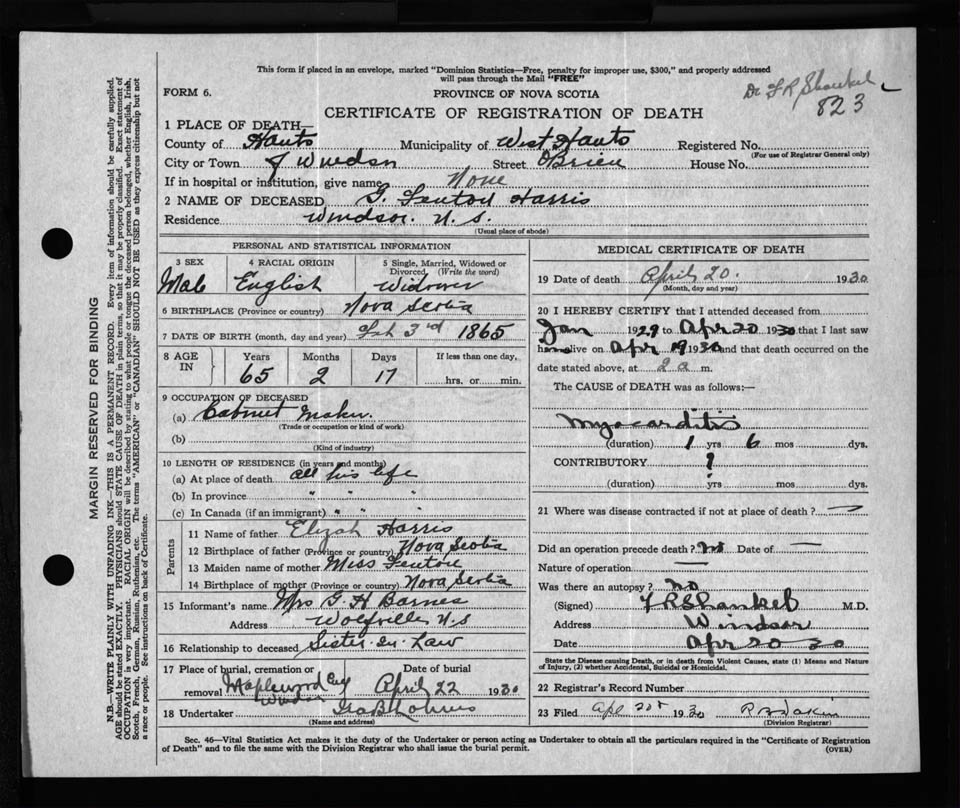 This form if placed in an envelope, marked "Dominion Statistics—Free, penalty for improper use, $300," and properly addressed
will pass through the Mail "FREE"
Dr F R Shankel
823
FORM 6.
PROVINCE OF NOVA SCOTIA
CERTIFICATE OF REGISTRATION OF DEATH
1 PLACE OF DEATH—
County of Hants Municipality of West Hants Registered No.
(For use of Registrar General only)
City or Town of Windsor Street O'Brien House No.
If in hospital or institution, give name None
2 NAME OF DECEASED G. Fenton Harris
Residence Windsor. N. S.
(Usual place of abode)
PERSONAL AND STATISTICAL INFORMATION
3 SEX
Male
4 RACIAL ORIGIN
English
5 Single, Married, Widowed or
Divorced, (Write the word)
Widower
6 BIRTHPLACE (Province or country) Nova Scotia
7 DATE OF BIRTH (month, day and year) Feb 3rd 1865
8 AGE IN
Years
65
Months
2
Days
17
If less than one day,
hrs. or min.
9 OCCUPATION OF DECEASED
(a) Cabinet Maker.
(Trade or occupation or kind of work)
(b)
(Kind of industry)
10 LENGTH OF RESIDENCE (in years and months)
(a) At place of death all his life
(b) In province " " "
(c) In Canada (if an immigrant) " " "
Parents
11 Name of father Elizah Harris
12 Birthplace of father (Province or country) Nova Scotia
13 Maiden name of mother Miss Fenton
14 Birthplace of mother (Province or country) Nova Scotia
15 Informant's name Mrs G H Barnes
Address Wolfville N.S
16 Relationship to deceased Sister-in-Law
17 Place of burial, cremation or
removal Maplewood Cey Windsor
Date of burial
April 22 1930
18 Undertaker
(Name and address)
MEDICAL CERTIFICATE OF DEATH
19 Date of death April 20. 1930
(Month, day and year)
20 I HEREBY CERTIFY that I attended deceased from
Jan 1929 to Apr 20 1930 that I last saw
him alive on Apr 19 1930 and that death occurred on the
date stated above, at 2 a m.
The CAUSE of DEATH was as follows:—
Myocarditis
(duration) 1 yrs 6 mos dys.
CONTRIBUTORY ?
(duration) yrs mos dys.
21 Where was disease contracted if not at place of death? —
Did an operation precede death? no Date of —
Nature of operation —
Was there an autopsy? no
(Signed) F R Shankel M.D.
Address Windsor
Date Apr 20 30
State the Disease causing Death, or in death from Violent Causes, state (1) Means and Nature
of Injury, (2) whether Accidental, Suicidal or Homicidal.
22 Registrar's Record Number
23 Filed Apl 20t 1930
(Division Registrar)
Sec. 46—Vital Statistics Act makes it the duty of the Undertaker or person acting as Undertaker to obtain all the particulars required in the "Certificate of Registration
of Death" and to file the same with the Division Registrar who shall issue the burial permit.
(OVER)
MARGIN RESERVED FOR BINDING
N.B.—WRITE PLAINLY WITH UNFADING INK—THIS IS A PERMANENT RECORD. Every item of information should be carefully supplied.
AGE should be stated EXACTLY. PHYSICIANS should STATE CAUSE OF DEATH in plain terms, so that it may be properly classified. Exact statement of
OCCUPATION is very important. RACIAL ORIGIN will be described by stating to what people or tongue the deceased person belonged, whether English, Irish,
Scotch, French, German, Russian, Ruthenian, etc. The terms "AMERICAN" or "CANADIAN" SHOULD NOT BE USED as they express citizenship but not
a race or people. See instructions on back of Certificate.